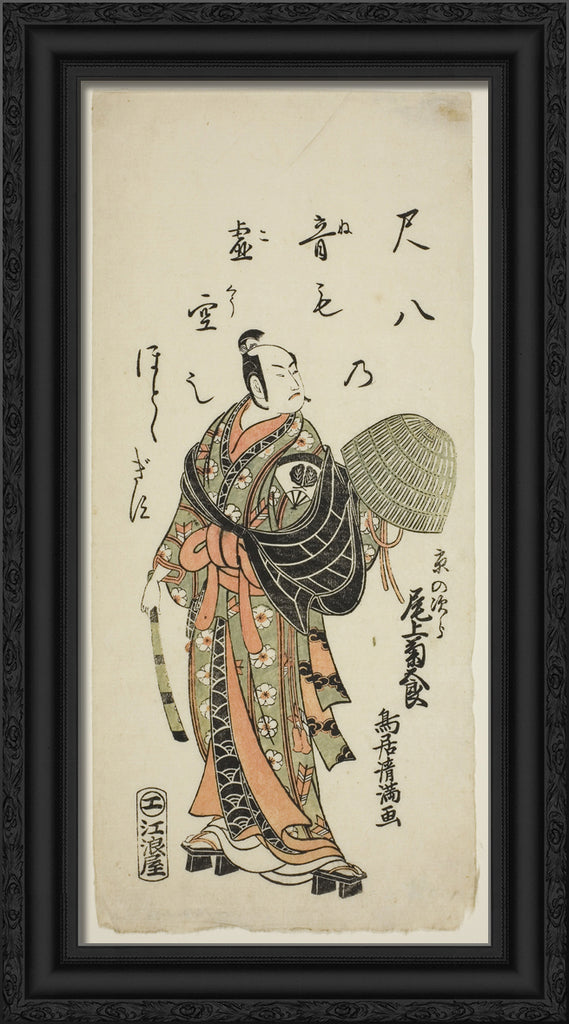 尺八
乃
音も
虚空
に
ほとゝぎす
ね
こ
くう
京の次らう
尾上菊五郎
鳥居清満画
エ
江浪屋